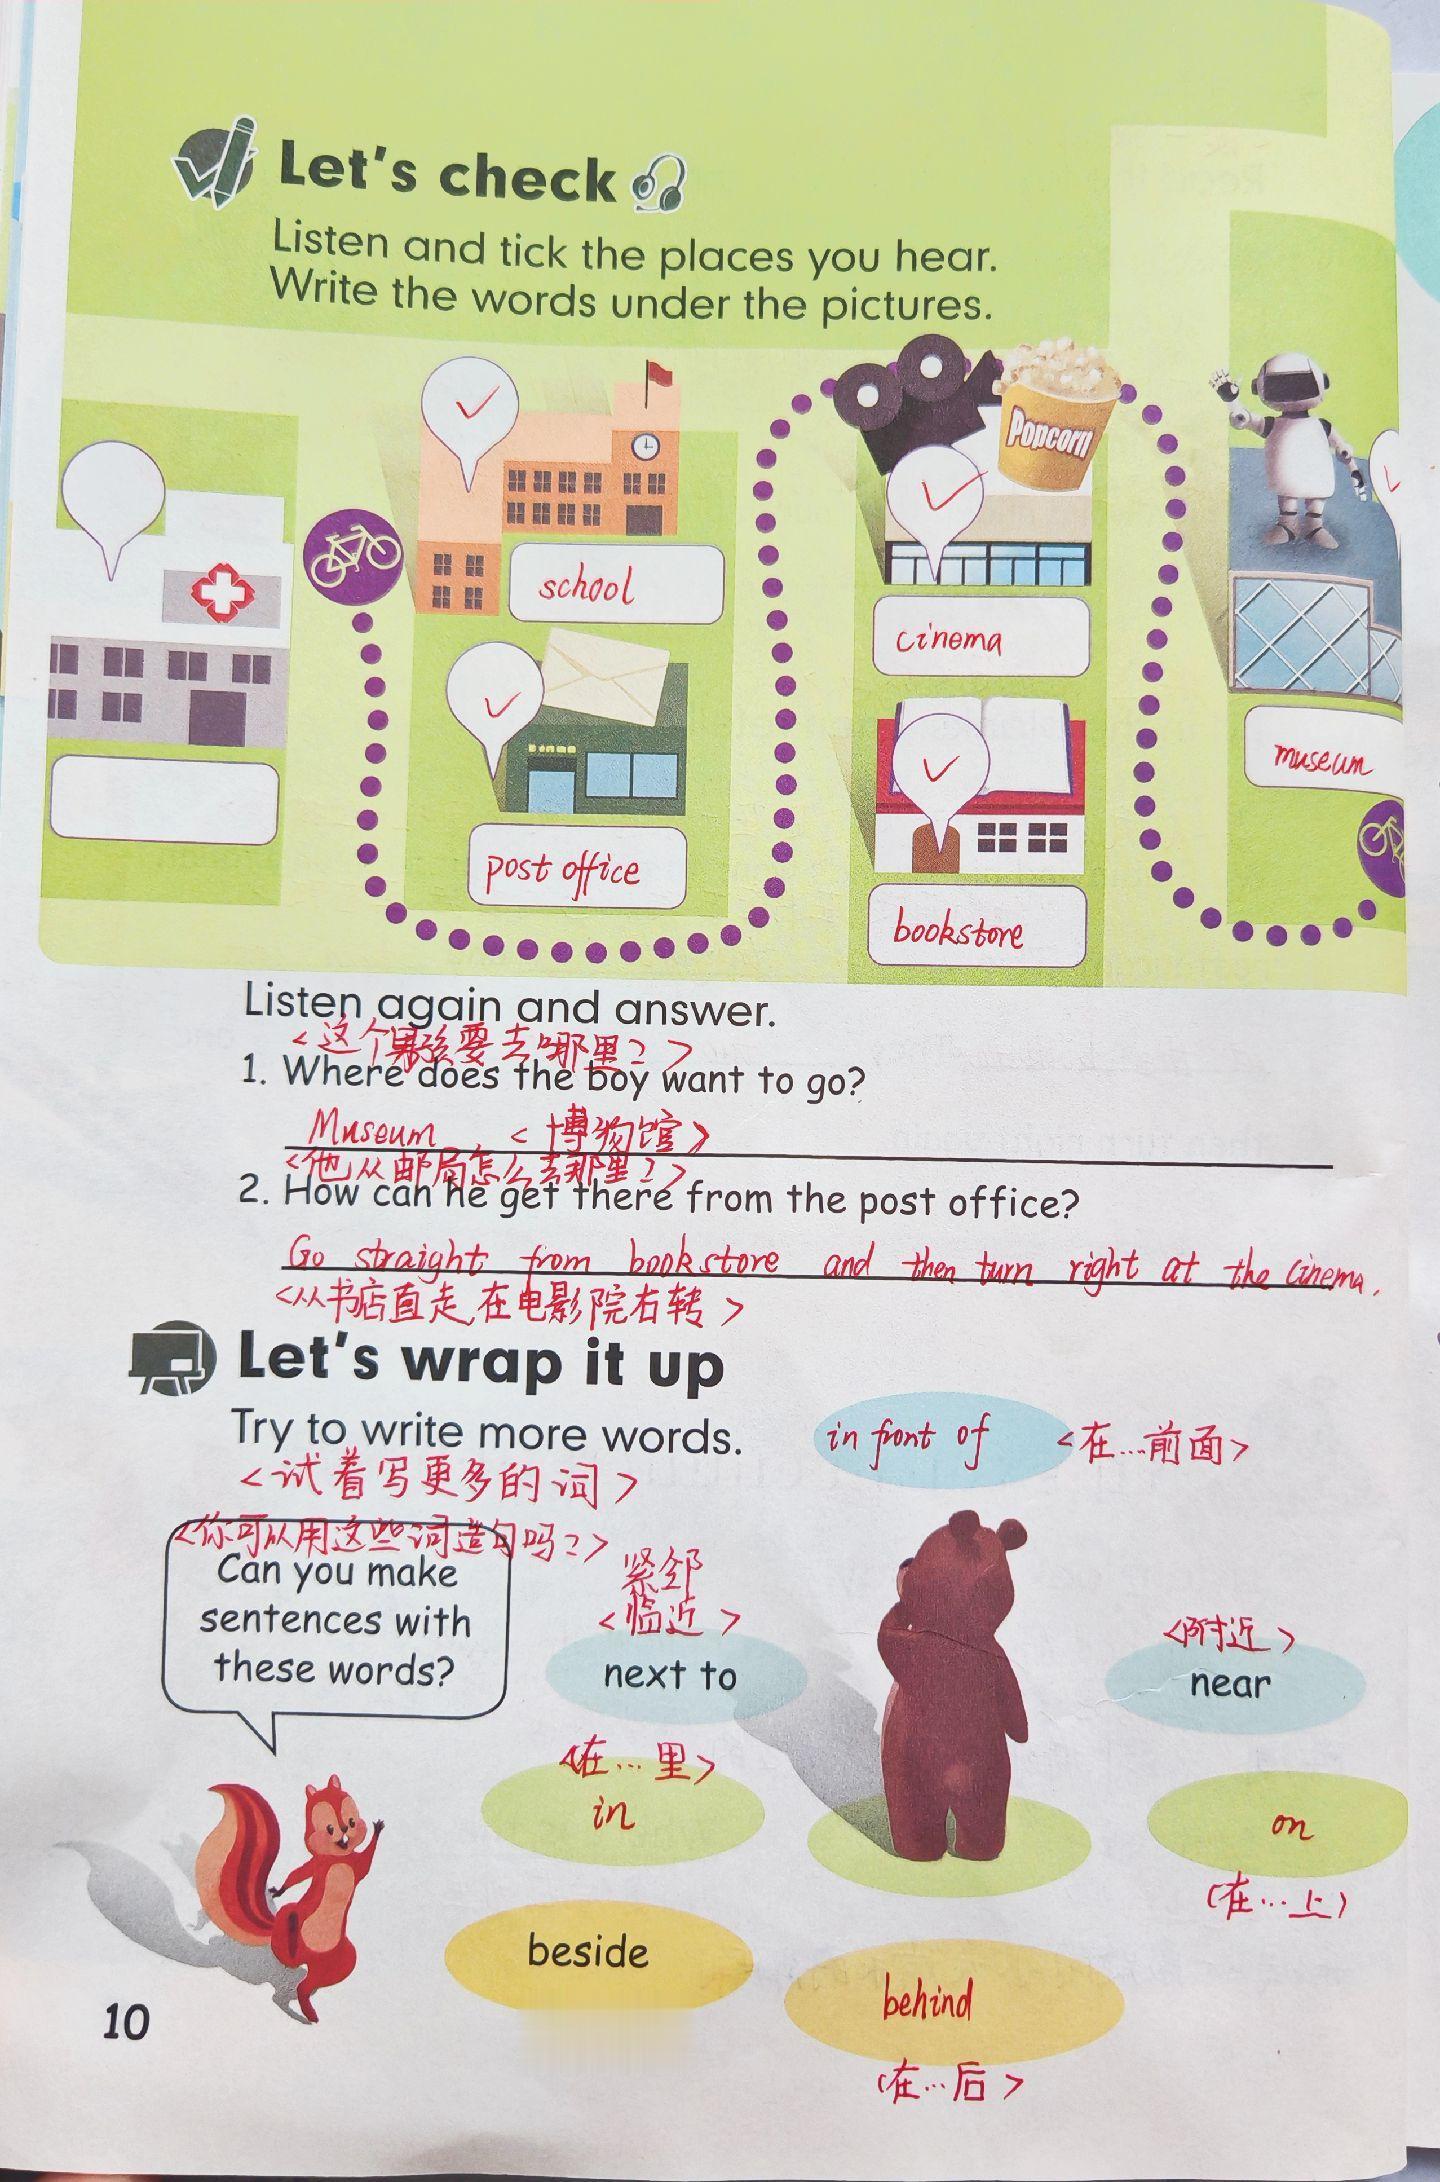 Let's check
Listen and tick the places you hear.
Write the words under the pictures.
Popcorn
school
cinema
museum
post office
bookstore
Listen again and answer.
<这个男孩要去哪里？>
1. Where does the boy want to go?
Museum <博物馆>
<他从邮局怎么去那里？>
2. How can he get there from the post office?
Go straight from bookstore and then turn right at the cinema.
<从书店直走,在电影院右转>
Let's wrap it up
Try to write more words.
in front of <在...前面>
<试着写更多的词>
<你可以用这些词造句吗？>
Can you make
sentences with
these words?
紧邻
<临近>
next to
<附近>
near
<在...里>
in
on
(在...上)
beside
behind
(在...后>
10